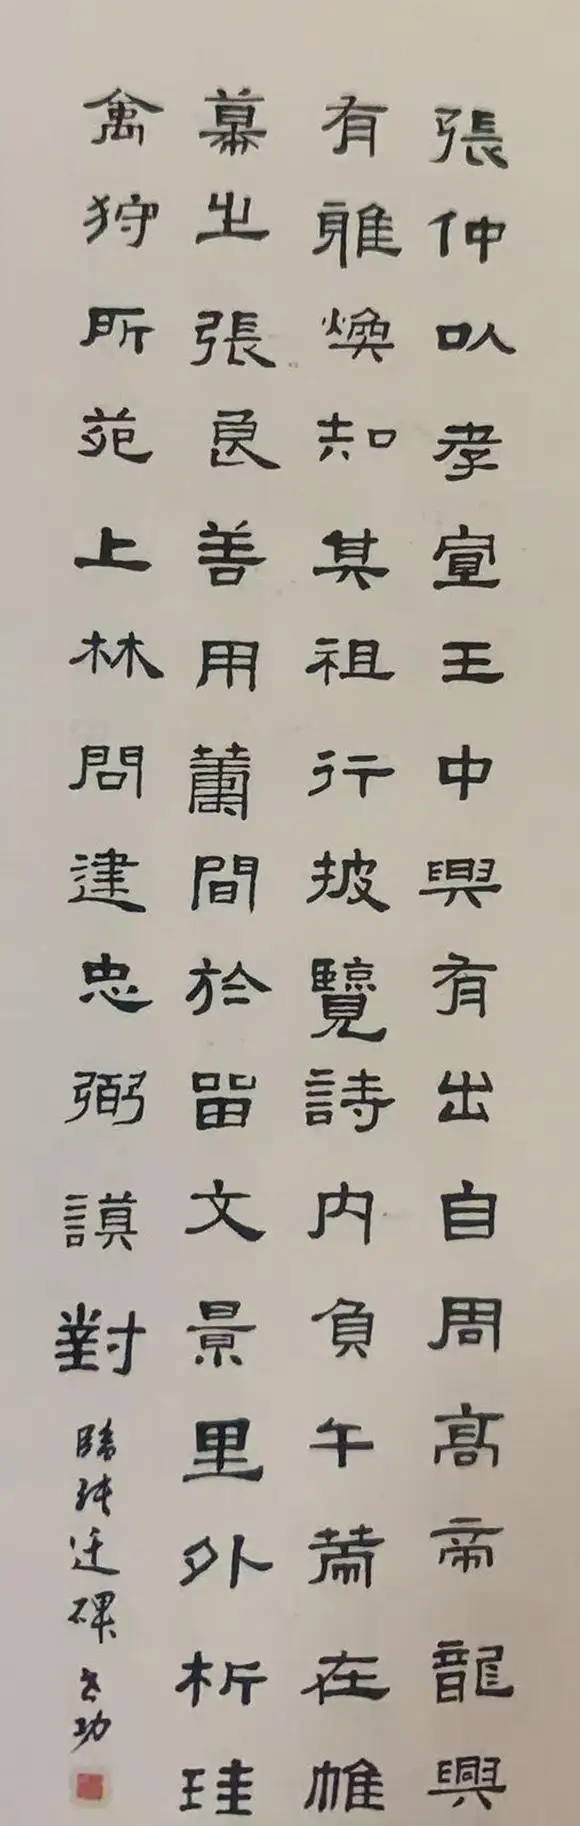 張仲以孝宣王中興有出自周高帝龍興
有雅煥知其祖行披覽詩内負千策在帷
幕之張良善用籌間於留文景里外析珪
禽狩所苑上林問建忠弼謨對
臨張遷碑 启功